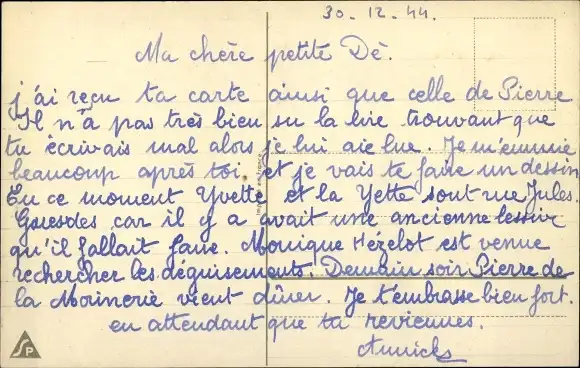 30-12-44.
Ma chère petite Dé.
j'ai reçu ta carte ainsi que celle de Pierre
Il n'a pas très bien su la lire trouvant que
tu écrivais mal alors je lui aie lue. Je m'ennuie
beaucoup après toi, et je vais te faire un dessin
En ce moment Yvette et la Yette sont rue Jules.
Guesdes car il y a avait une ancienne lessive
qu'il fallait faire. Monique Hérelot est venue
rechercher les déguisements. Demain soir Pierre de
la Morinerie vient dîner. Je t'embrasse bien fort.
en attendant que tu reviennes.
Annick
SP